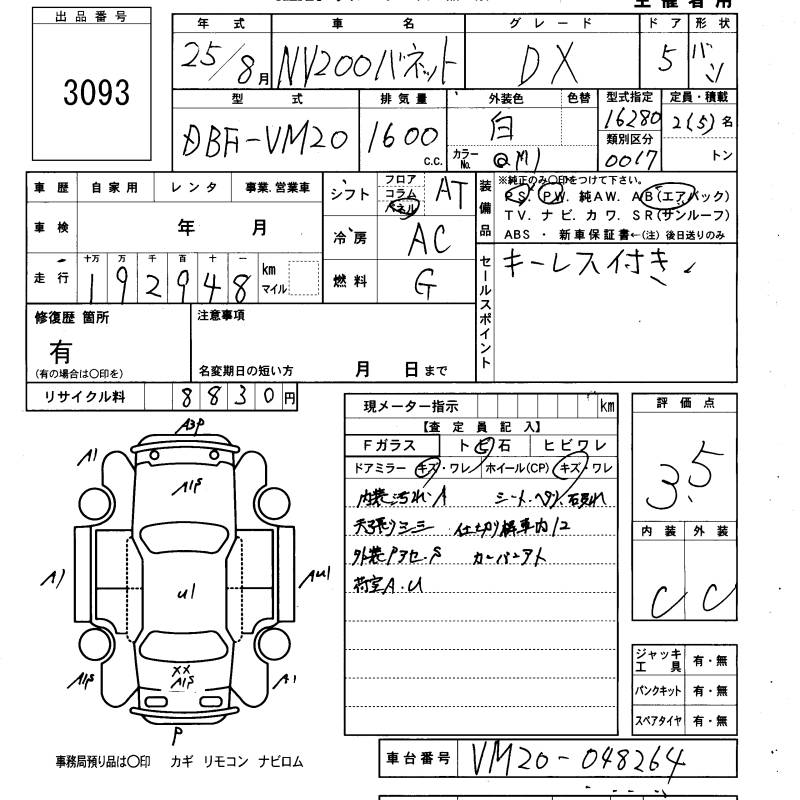 主催者用
出品番号
3093
年式 車名 グレード ドア 形状
25/8月 NV200バネット DX 5 バン
型式 排気量 外装色 色替 型式指定 定員・積載
DBF-VM20 1600 c.c. 白 16280 2(5)名
カラーNo. QM1 類別区分 0017 トン
車歴 自家用 レンタ 事業.営業車
シフト フロア コラム パネル AT
装備品 ※純正のみ〇印をつけて下さい。
PS. PW. 純AW. AB(エアバック)
TV. ナビ. カワ. SR(サンルーフ)
ABS ・ 新車保証書←(注) 後日送りのみ
車検 年 月
冷房 AC
走行 十万 万 千 百 十 一
192948 km マイル
燃料 G
セールスポイント キーレス付き
修復歴 箇所 注意事項
有
(有の場合は〇印を) 名変期日の短い方 月 日まで
リサイクル料 8830円
現メーター指示 km
【査定員記入】
Fガラス トビ石 ヒビワレ
ドアミラー キズ・ワレ ホイール(CP) キズ・ワレ
内装汚れ.A シートヘタリ.
天張りシミ 車内
外装
荷室A.U
評価点
3.5
内装 外装
C C
A3P
A1
A1S
A1
U1
AU1
XX
A1S
A1S
A1
P
ジャッキ工具 有・無
パンクキット 有・無
スペアタイヤ 有・無
事務局預り品は〇印 カギ リモコン ナビロム
車台番号 VM20-048264